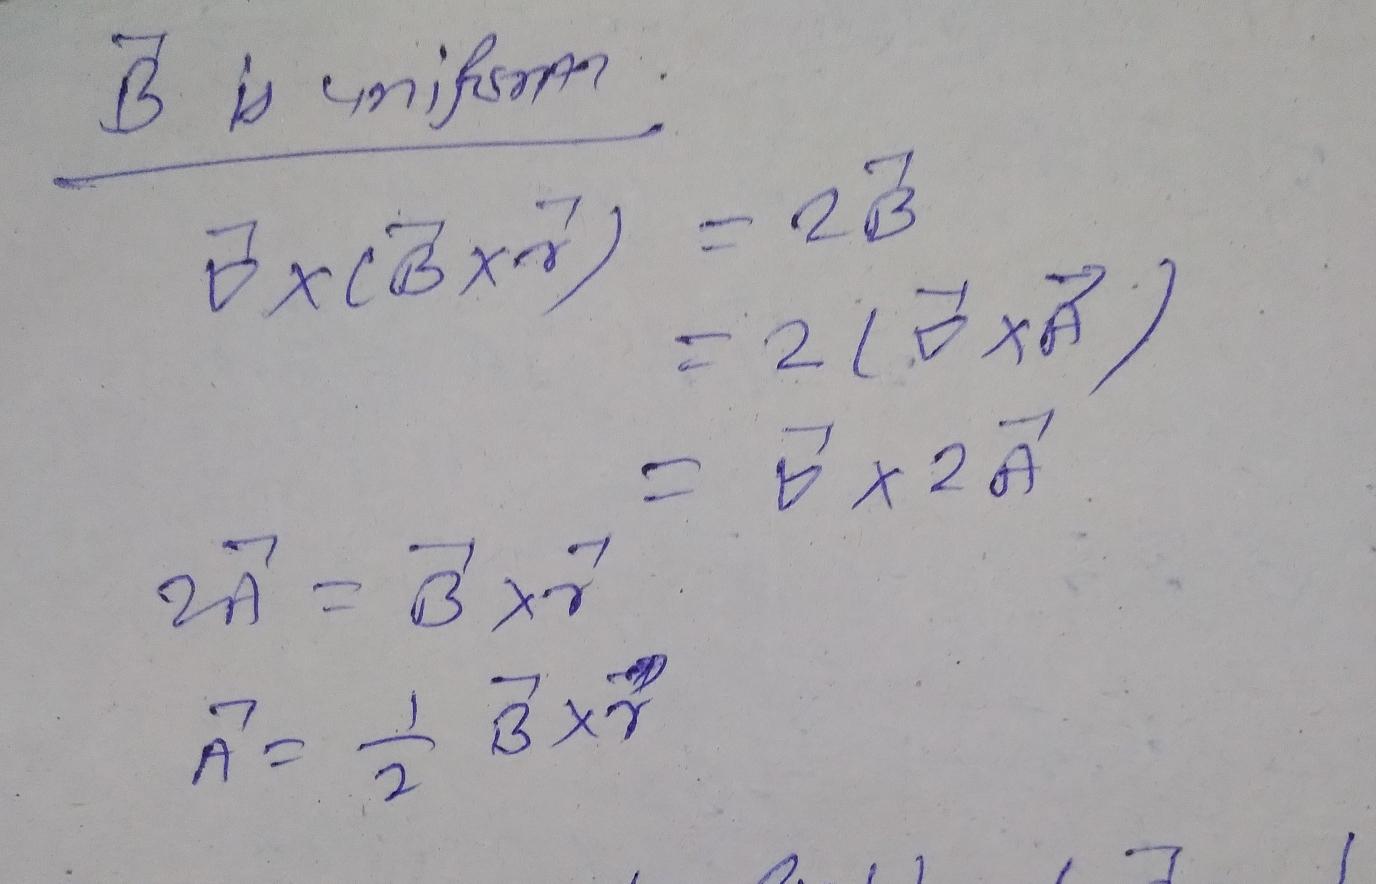 B⃗ is uniform.
∇⃗ × (B⃗ × r⃗) = 2B⃗
= 2(∇⃗ × A⃗)
= ∇⃗ × 2A⃗
2A⃗ = B⃗ × r⃗
A⃗ = 1/2 B⃗ × r⃗